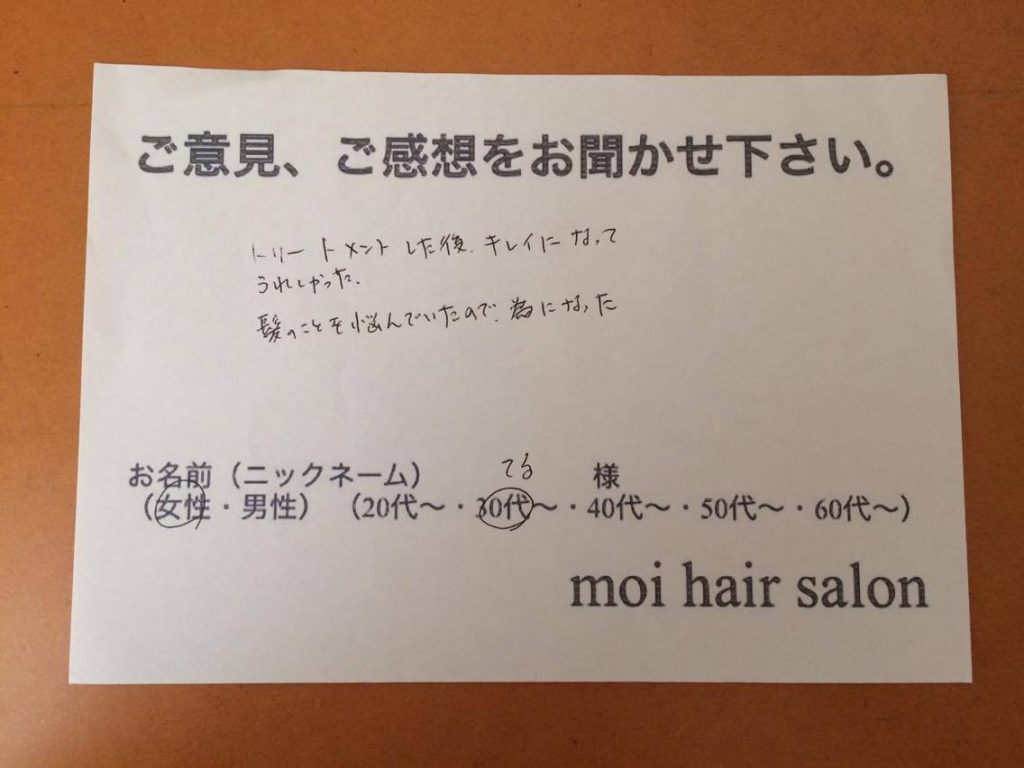 ご意見、ご感想をお聞かせ下さい。
トリートメントした後、キレイになって
うれしかった。
髪のことを悩んでいたので、為になった
お名前（ニックネーム） てる 様
（女性・男性）（20代～・30代～・40代～・50代～・60代～）
moi hair salon